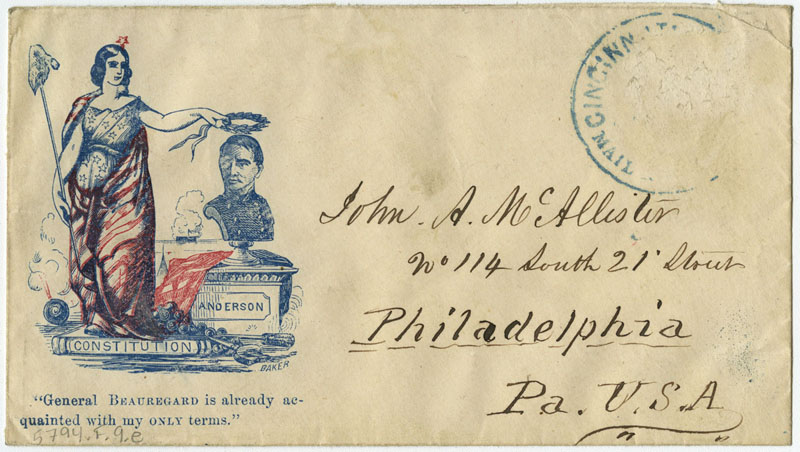 CINCINN
MAIL
John. A. McAllister
No 114 South 21 Street
Philadelphia
Pa. U.S.A
ANDERSON
CONSTITUTION
BAKER
"General BEAUREGARD is already ac-
quainted with my ONLY terms."
5794.F.9.e